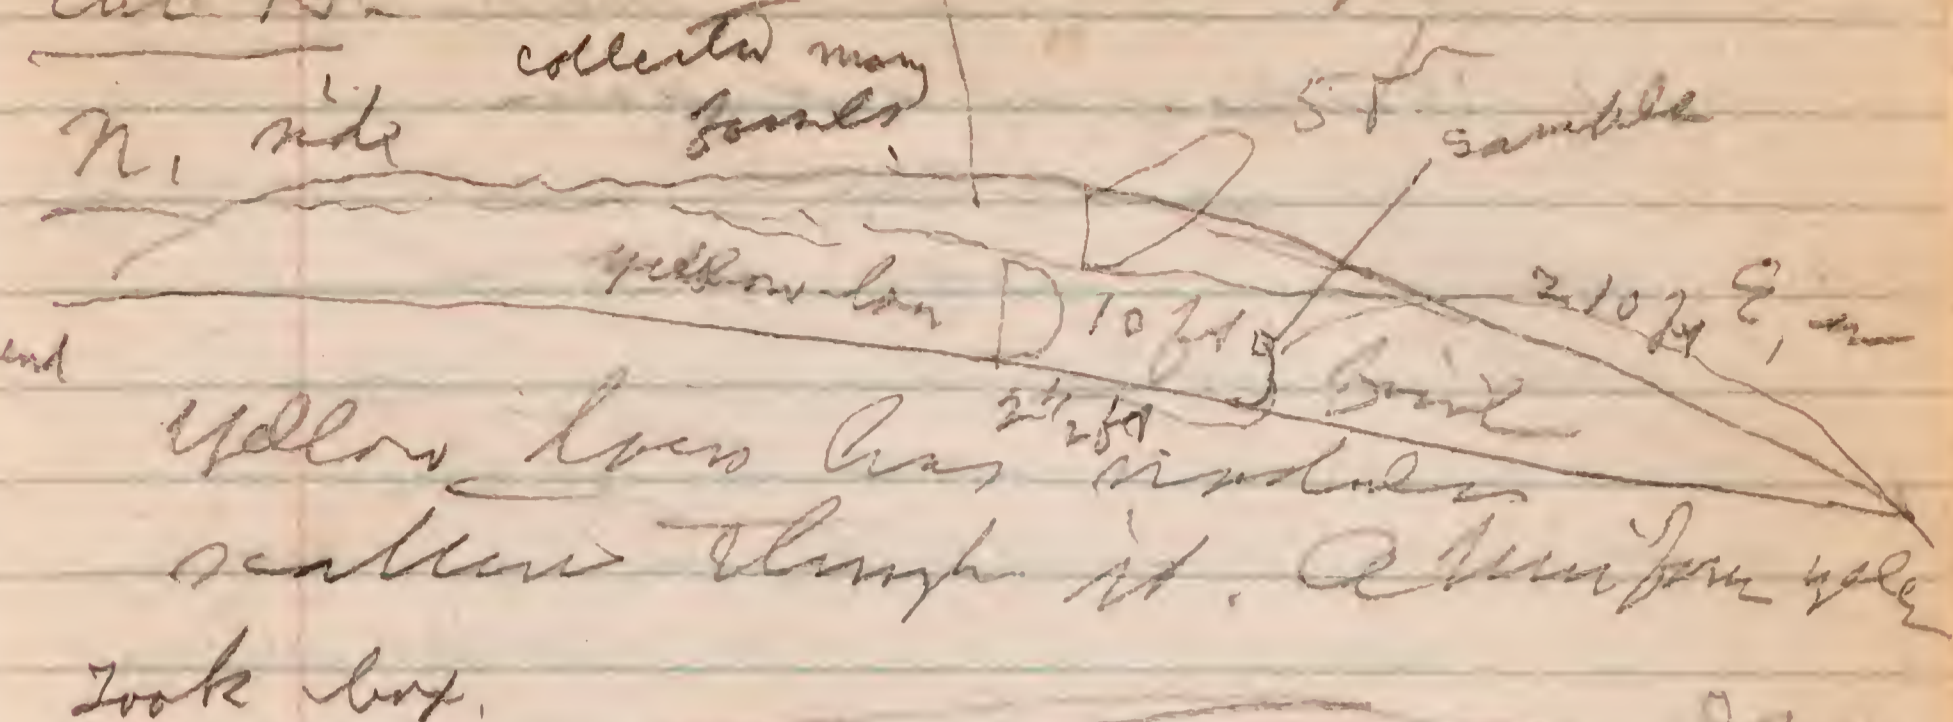 collected many
N. side fossils
5 ft
sample
yellow loess
10 ft
210 ft E,
end
2 1/2 ft
yellow loess has nodules
scattered through it. A uniform yellow
Took box.